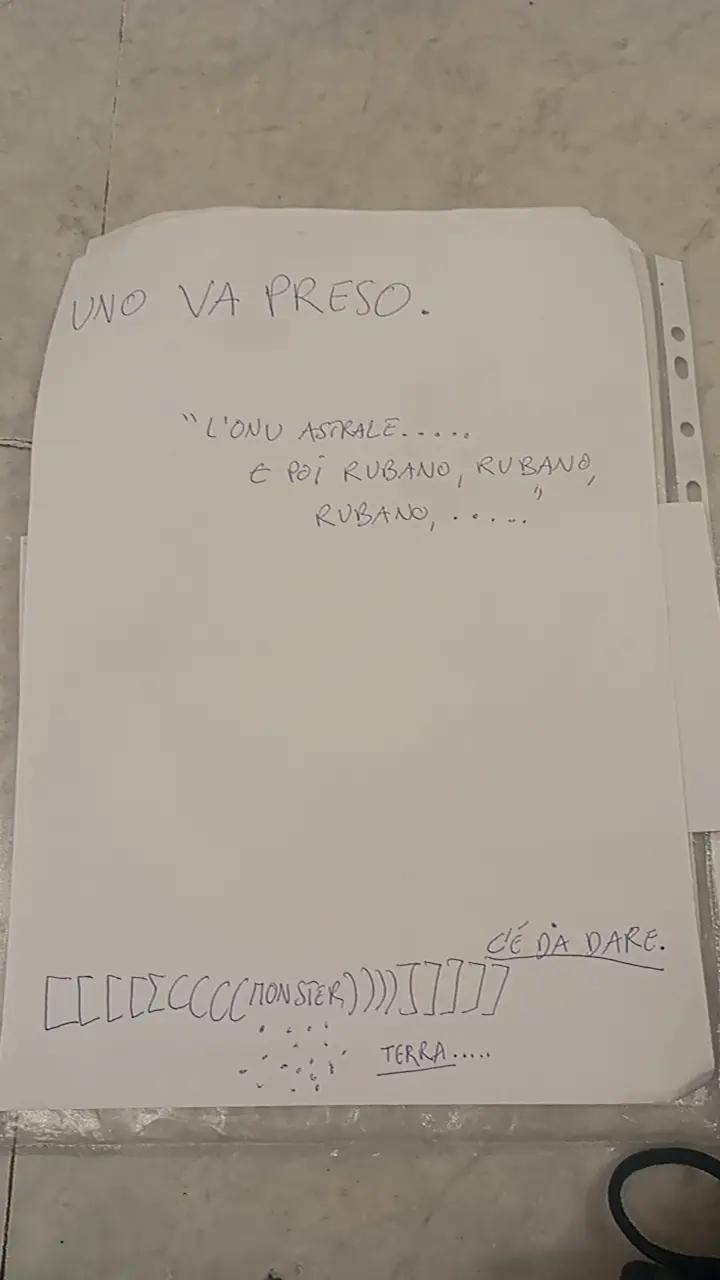 UNO VA PRESO.
"L'ONU ASTRALE.....
E POI RUBANO, RUBANO,
RUBANO, ....."
C'É DA DARE.
[[[[[((((MONSTER))))]]]]]
TERRA.....